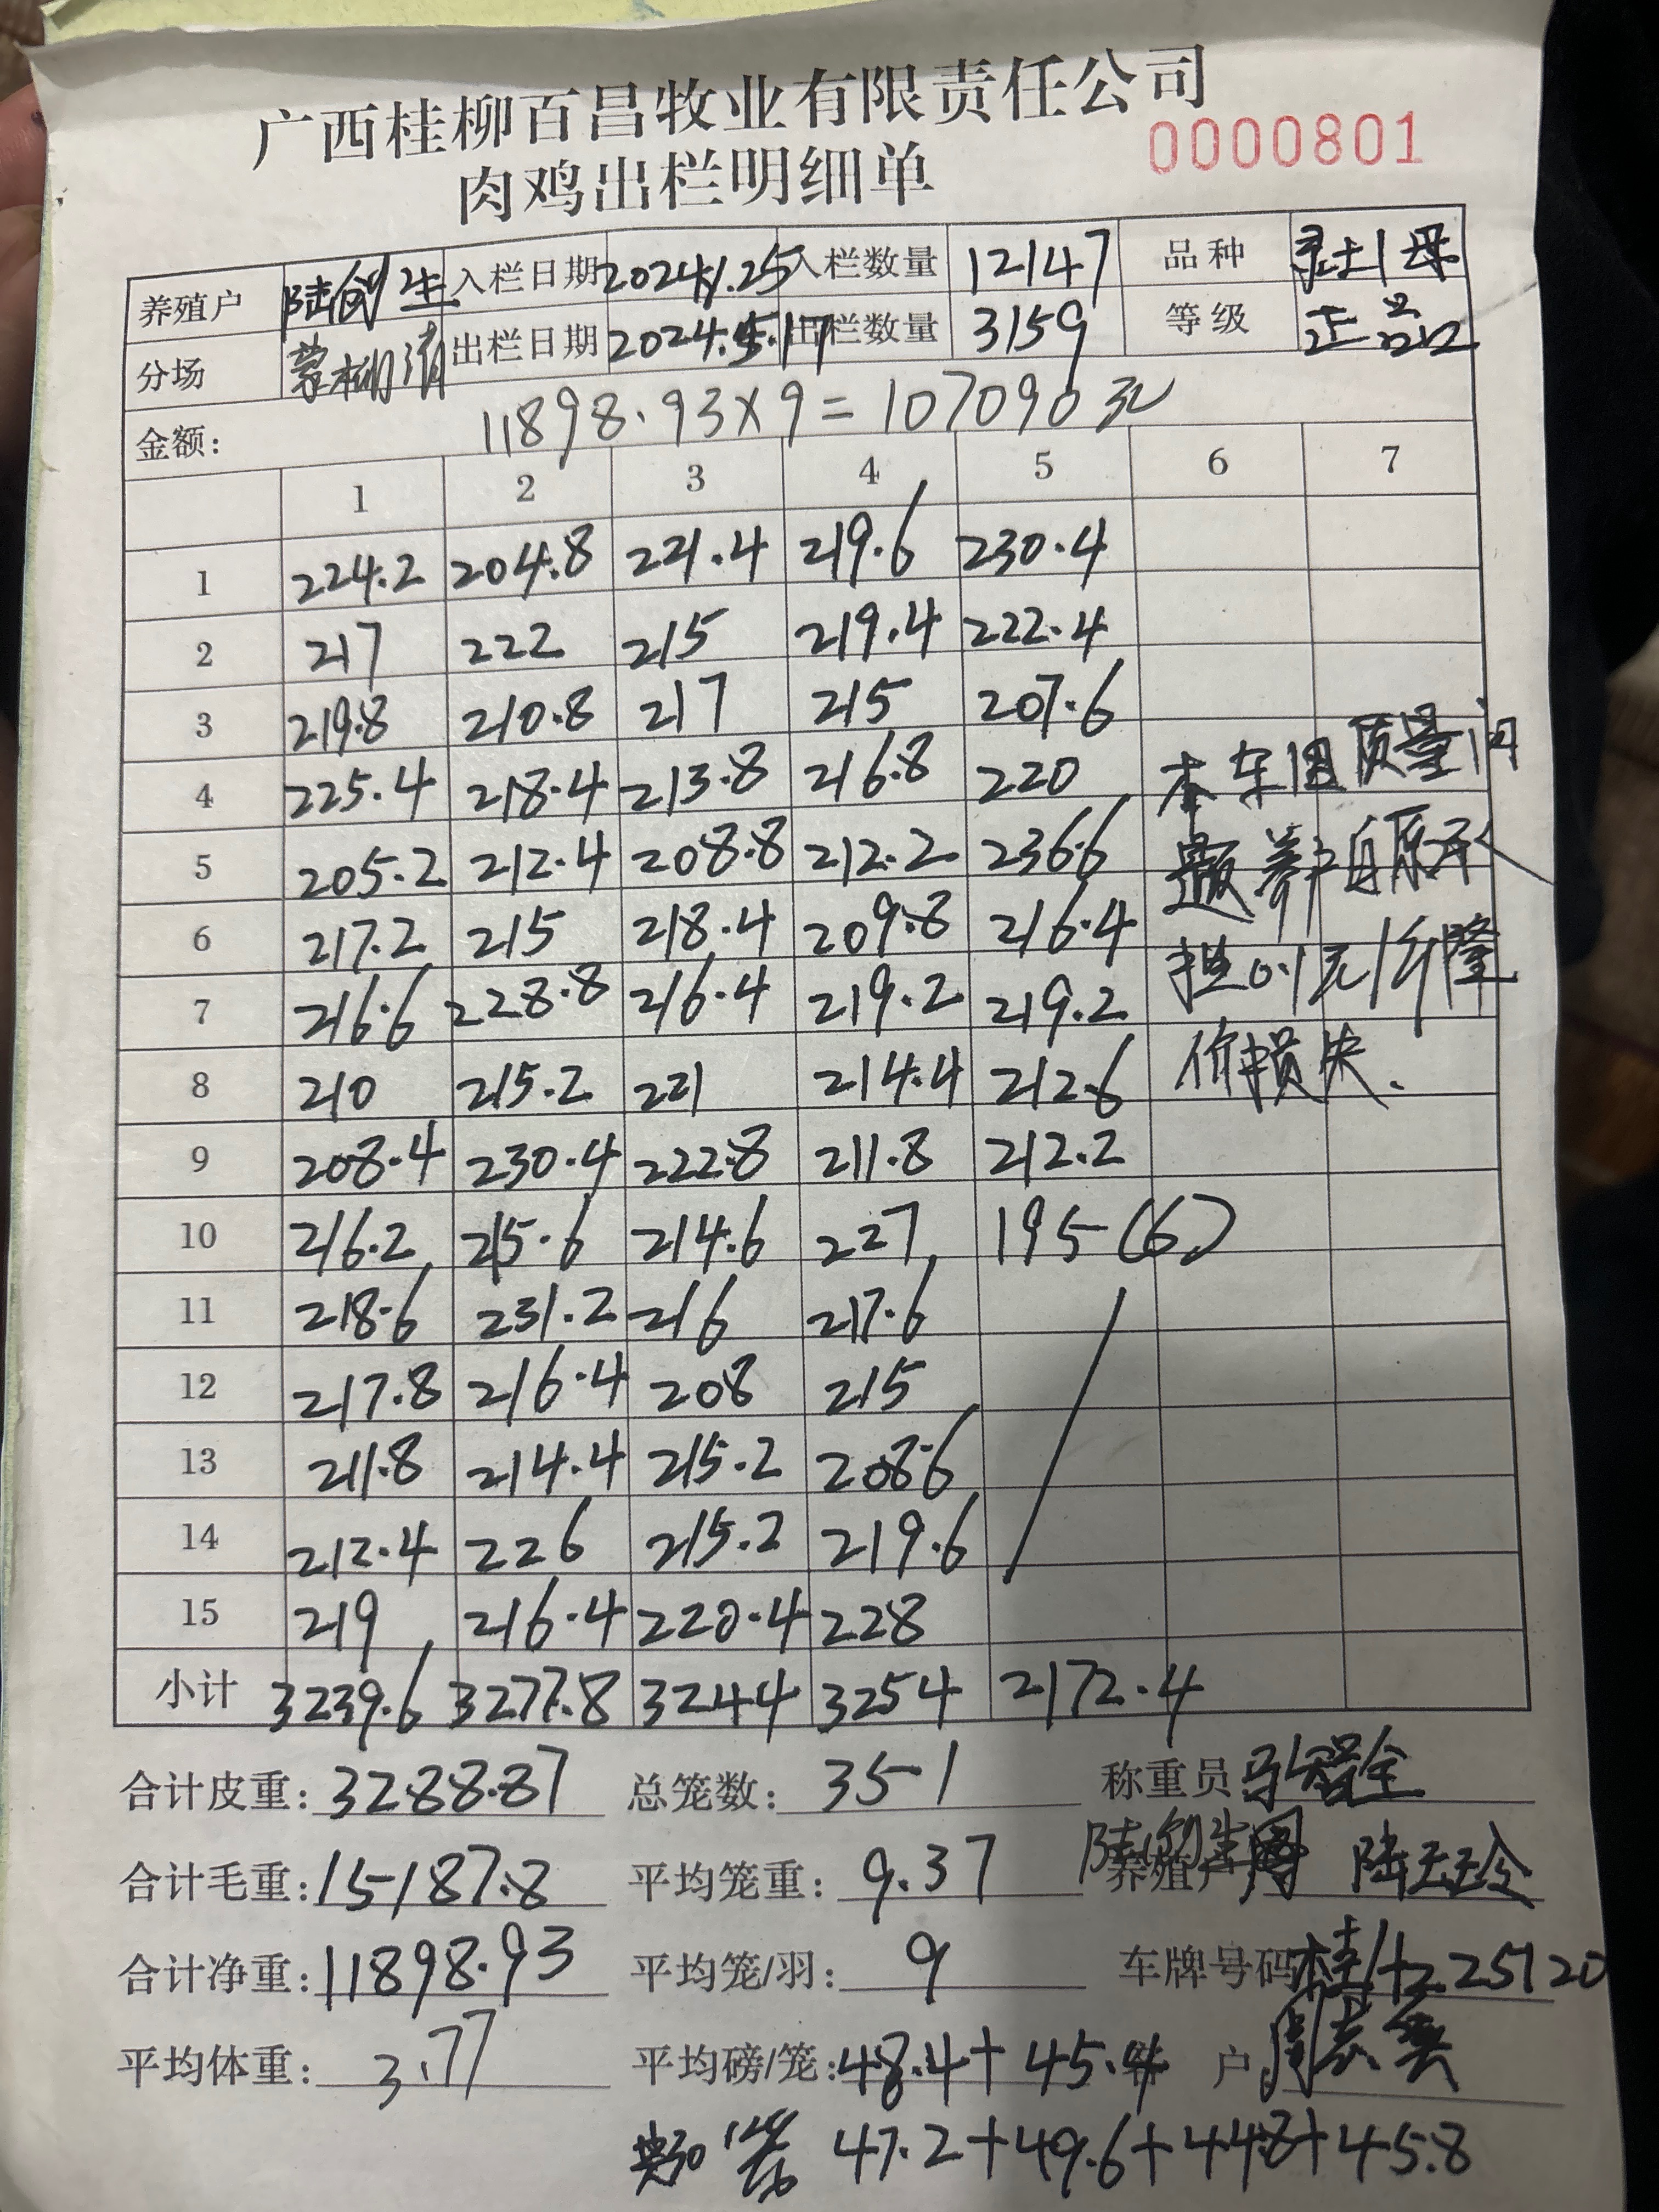 广西桂柳百昌牧业有限责任公司
肉鸡出栏明细单
0000801
养殖户 陆创生 入栏日期 2024.1.25 入栏数量 12147 品种 灵土1母
分场 蒙柳清 出栏日期 2024.5.17 出栏数量 3159 等级 正品
金额: 11898.93×9=107090元
1 2 3 4 5 6 7
1 224.2 204.8 221.4 219.6 230.4
2 217 222 215 219.4 222.4
3 219.8 210.8 217 215 207.6
4 225.4 218.4 213.8 216.8 220
5 205.2 212.4 208.8 212.2 236.6
6 217.2 215 218.4 209.8 216.4
7 216.6 228.8 216.4 219.2 219.2
8 210 215.2 221 214.4 212.6
9 208.4 230.4 222.8 211.8 212.2
10 216.2 215.6 214.6 227 195(6)
11 218.6 231.2 216 217.6
12 217.8 216.4 208 215
13 211.8 214.4 215.2 208.6
14 212.4 226 215.2 219.6
15 219 216.4 220.4 228
小计 3239.6 3277.8 3244 3254 2172.4
本车因质量问
题养户自愿承
担0.1元/斤降
价损失.
合计皮重: 3288.87 总笼数: 351 称重员
合计毛重: 15187.8 平均笼重: 9.37 养殖户 陆创生
合计净重: 11898.93 平均笼/羽: 9 车牌号码 桂
平均体重: 3.77 平均磅/笼: 48.4+45.4 户
47.2+49.6+44.8+45.8